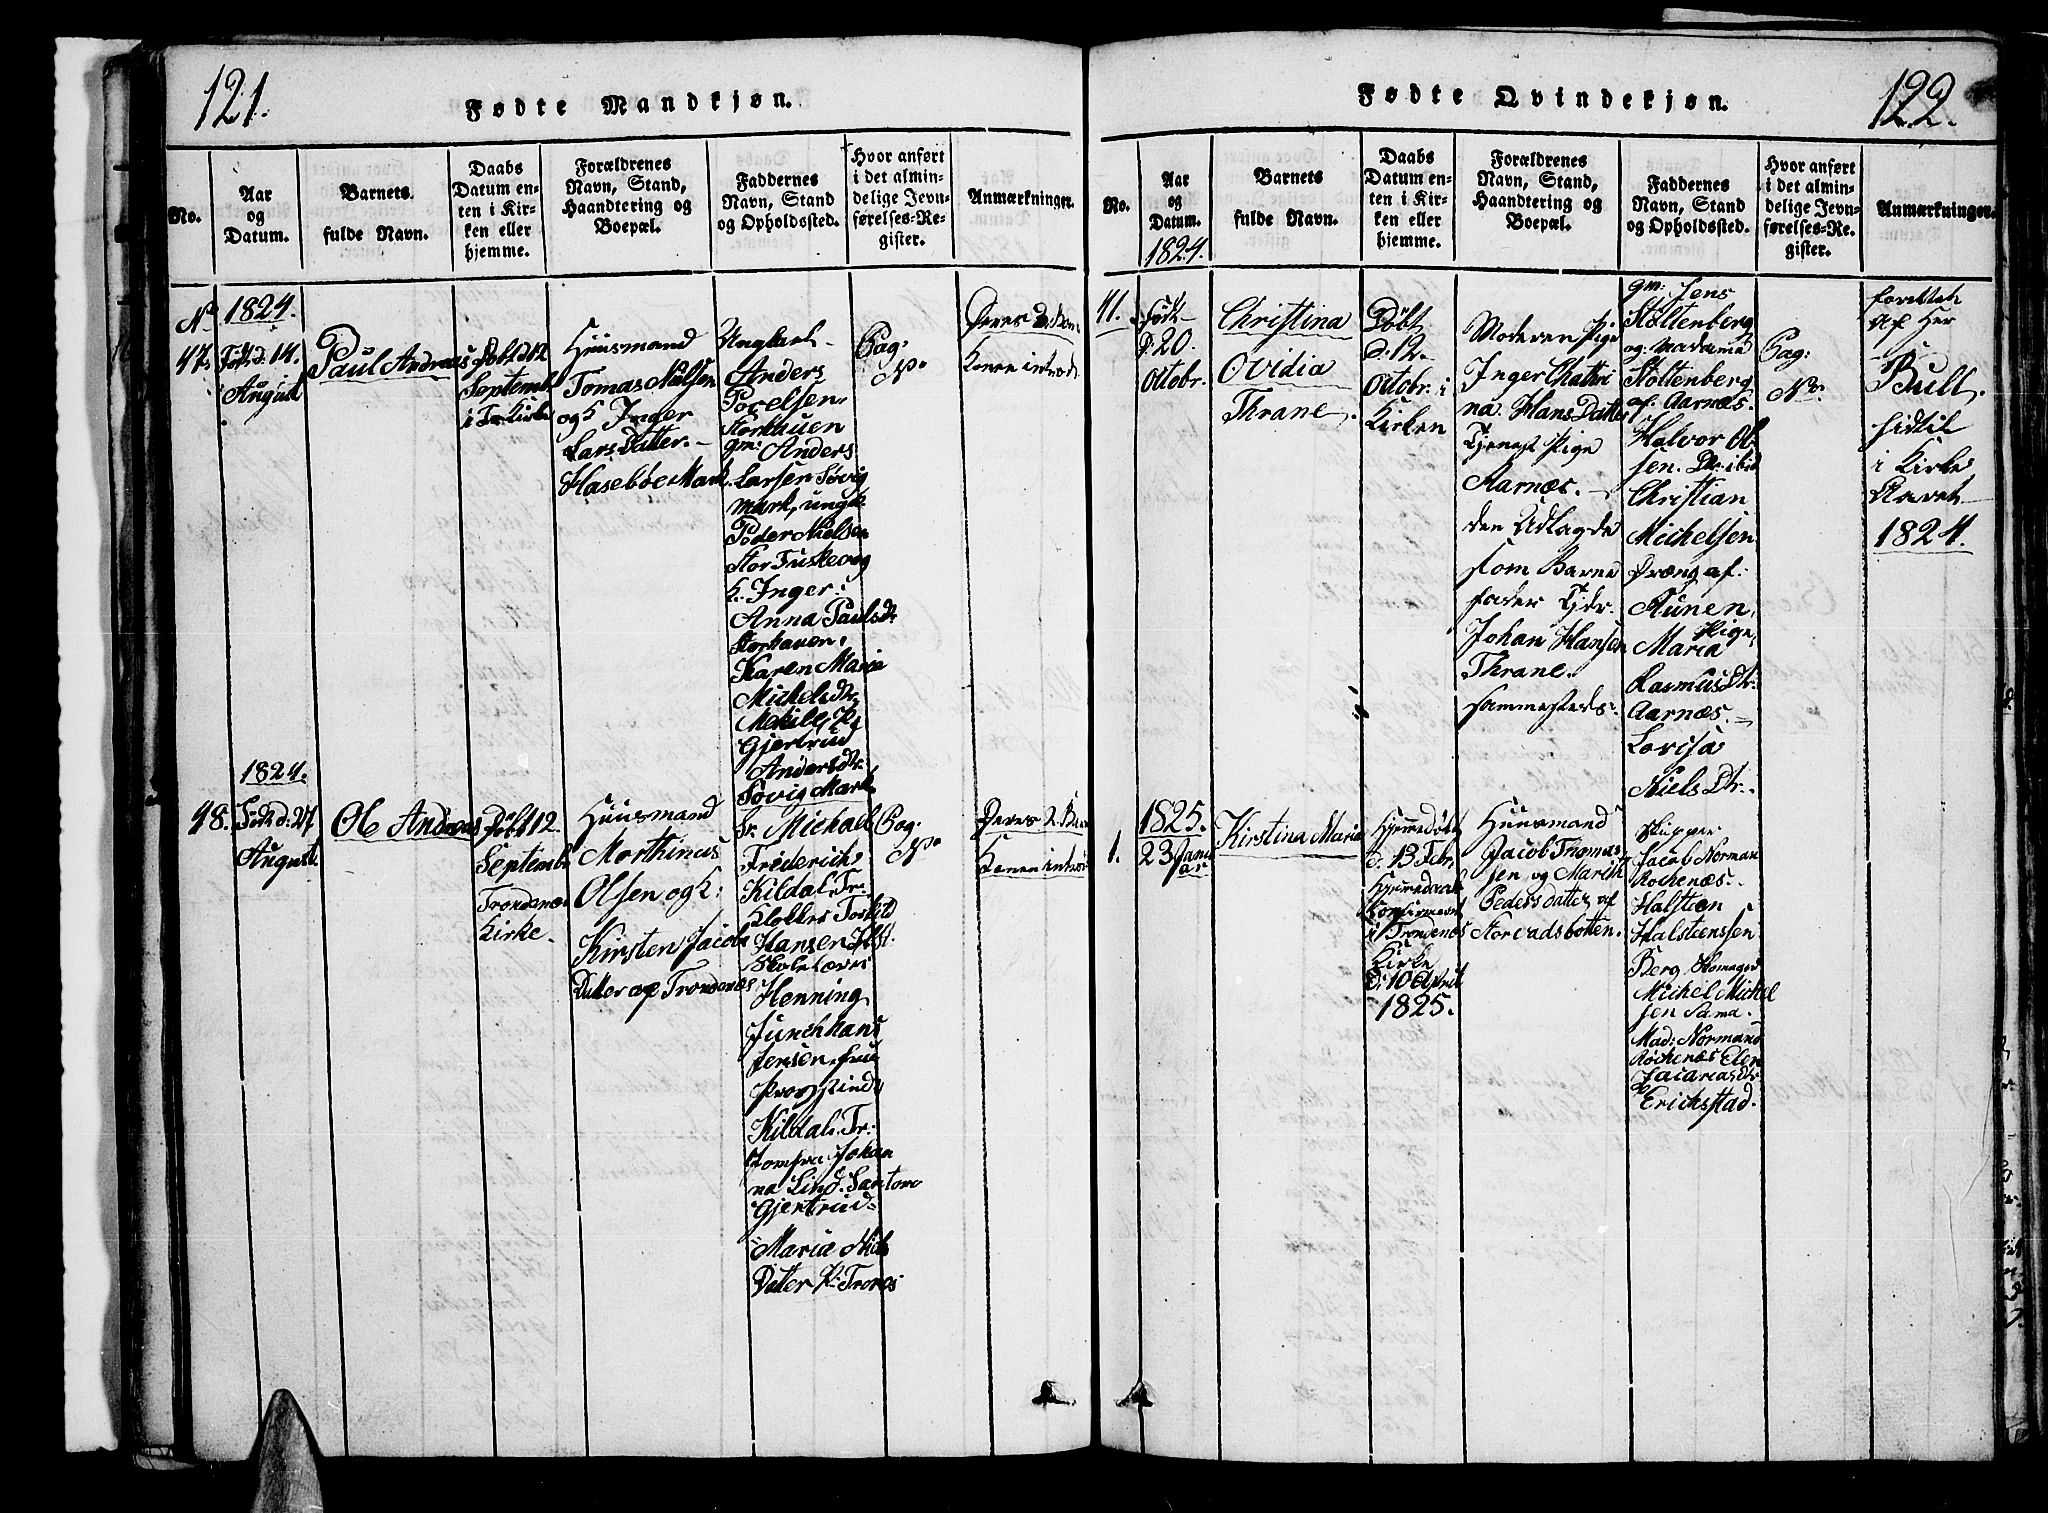 121.
Fødte Mandkjøn.
No.
Aar
og
Datum.
Barnets
fulde Navn.
Daabs
Datum en-
ten i Kir-
ken eller
hjemme.
Forældrenes
Navn, Stand,
Haandtering og
Boepæl.
Faddernes
Navn, Stand
og Opholdssted.
Hvor anført
i det almin-
delige Jevn-
førelses-Re-
gister.
Anmærkninger.
No
47.
1824.
Født d: 14.
August
Paul Andreas
Døbt d 12
Septembr
i Tr: Kirke
Huusmand
Tomas Nielsen
og K Inger
Lars Datter.
Hasebøe Mark
Ungkarl
Anders
Povelsen
Storhauen
gm: Anders
Larsen Søvig
mark, ungk:
Peder Nielsen
Stor
K. Inger:
Anna Paulsdr
Storhauen.
Karen Marie
Michelsdtr
Gjertrud
Andersdtr
Søvig Mark
Pag:
No
Deres 2. Barn
Konen introd:
48.
1824.
Født d: 27
August
Ole Andreas
Døbt 12.
Septembr
Trondenæs
Kirke.
Huusmand
Morthinus
Olsen og K:
Kirsten Jacobs
Datter af Trondenæs
Sr. Michael
Friderich
Kildal. Tr:
Klokker Toskild
Hansen
Skolelærer
Henning
Junchhans
Jensen, frue
Provstinde
Kildal. Tr:
Jomfru Johan
na Lind. Santorv
Gjertrud
Maria Niels
Datter P: Trones
Pag:
No
Deres 2. Barn
Konen introd
122.
Fødte Qvindekjøn.
No.
Aar
og
Datum.
1824.
Barnets
fulde Navn.
Daabs
Datum en-
ten i Kir-
ken eller
hjemme.
Forældrenes
Navn, Stand,
Haandtering og
Boepæl.
Faddernes
Navn, Stand
og Opholdssted.
Hvor anført
i det almin-
delige Jevn-
førelses-Re-
gister.
Anmærkninger.
41.
Født
D: 20.
Octobr.
Christina
Ovidia
Thrane.
Døbt
d: 12.
Octobr. i
Kirken
Moderen Pige
Inger Chatri
na Hans Datter
Tjenest Pige
Aarnæs.
den Udlagde
som Barne
fader Tjdr.
Johan Hansen
Thrane.
sammesteds.
gm: Jens
Stoltenberg
og Madame
Stoltenberg
af Aarnæs.
Halvor Ol
sen. Dr: ibid
Christian
Michelsen
Dræng af
Aunen,
Pige,
Maria
RasmusDtr:
Aarnæs.
Lovisa
Niels Dtr:
Pag:
No:
forrettet
af Her
Bull.
sidtil
i Kirke
Aaret
1824.
1.
1825.
23 Janu
ar
Kirstina Maria
Hjemmedøbt
d. 13 Febr.
Hjemmedaab
Konfirmeret
i Trondenæs
Kirke
D: 10 April
1825.
Huusmand
Jacob Thomas
sen og Marith
Peders datter af
Storvadsbotten.
Skipper
Jacob Norman
Røchenæs.
Halsteen
Halsteenssen
Berg
Michel Michel
sen Sama.
Mad: Normann
Røchenæs Elen
Zacariasdtr
Erichsstad.